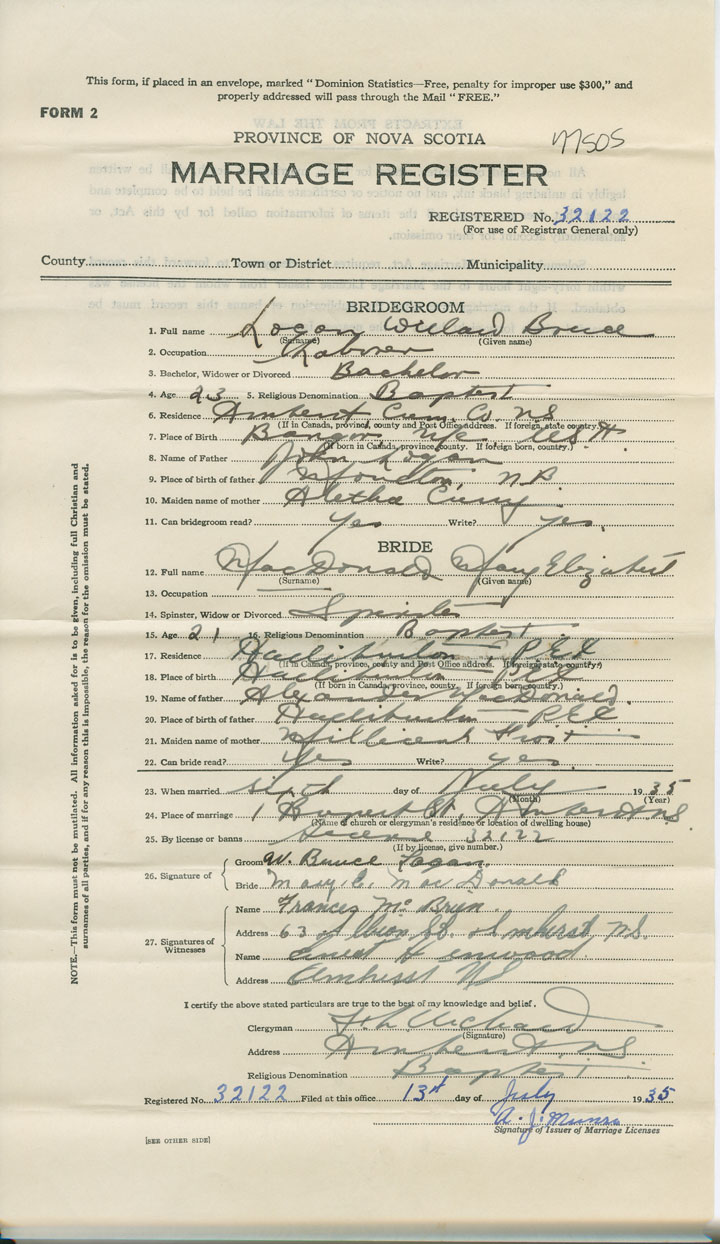 This form, if placed in an envelope, marked "Dominion Statistics—Free, penalty for improper use $300," and
properly addressed will pass through the Mail "FREE."
FORM 2
PROVINCE OF NOVA SCOTIA
MARRIAGE REGISTER
REGISTERED No. 32122
(For use of Registrar General only)
County Town or District Municipality
BRIDEGROOM
1. Full name Logan Willard Bruce
(Surname) (Given name)
2. Occupation Laborer
3. Bachelor, Widower or Divorced Bachelor
4. Age 23 5. Religious Denomination Baptist
6. Residence Amherst Cum. Co. N S
(If in Canada, province, county and Post Office address. If foreign, state country.)
7. Place of Birth Bangor, USA
(If born in Canada, province, county. If foreign born, country.)
8. Name of Father John Logan
9. Place of birth of father Moncton, N.B.
10. Maiden name of mother Aletha Curry
11. Can bridegroom read? Yes Write? yes.
BRIDE
12. Full name MacDonald Mary Elizabeth
(Surname) (Given name)
13. Occupation
14. Spinster, Widow or Divorced Spinster
15. Age 21 16. Religious Denomination Baptist
17. Residence Haliburton P.E.I.
(If in Canada, province, county and Post Office address. If foreign, state country.)
18. Place of Birth Haliburton PEI
(If born in Canada, province, county. If foreign born, country.)
19. Name of father Alexander MacDonald.
20. Place of birth of father Haliburton P.E.I
21. Maiden name of mother Millicent Frost
22. Can bride read? Yes Write? yes.
23. When married sixth day of July 1935
(Month) (Year)
24. Place of marriage 1 Rupert St. Amherst N.S.
(Name of church or clergyman's residence or location of dwelling house)
25. By license or banns License 32122
(If by license, give number.)
26. Signature of Groom W. Bruce Logan.
Bride Mary E. MacDonald
27. Signatures of Witnesses
Name Frances Mc Brien
Address 63 Albion St. Amherst N.S.
Name
Address Amherst N S
I certify the above stated particulars are true to the best of my knowledge and belief.
Clergyman
(Signature)
Address Amherst N.S.
Religious Denomination Baptist
Registered No. 32122 Filed at this office 13th day of July 1935
A. J. Munro
Signature of Issuer of Marriage Licenses
[SEE OTHER SIDE]
NOTE.—This form must not be mutilated. All information asked for is to be given, including full Christian and
surnames of all parties, and if for any reason this is impossible, the reason for the omission must be stated.